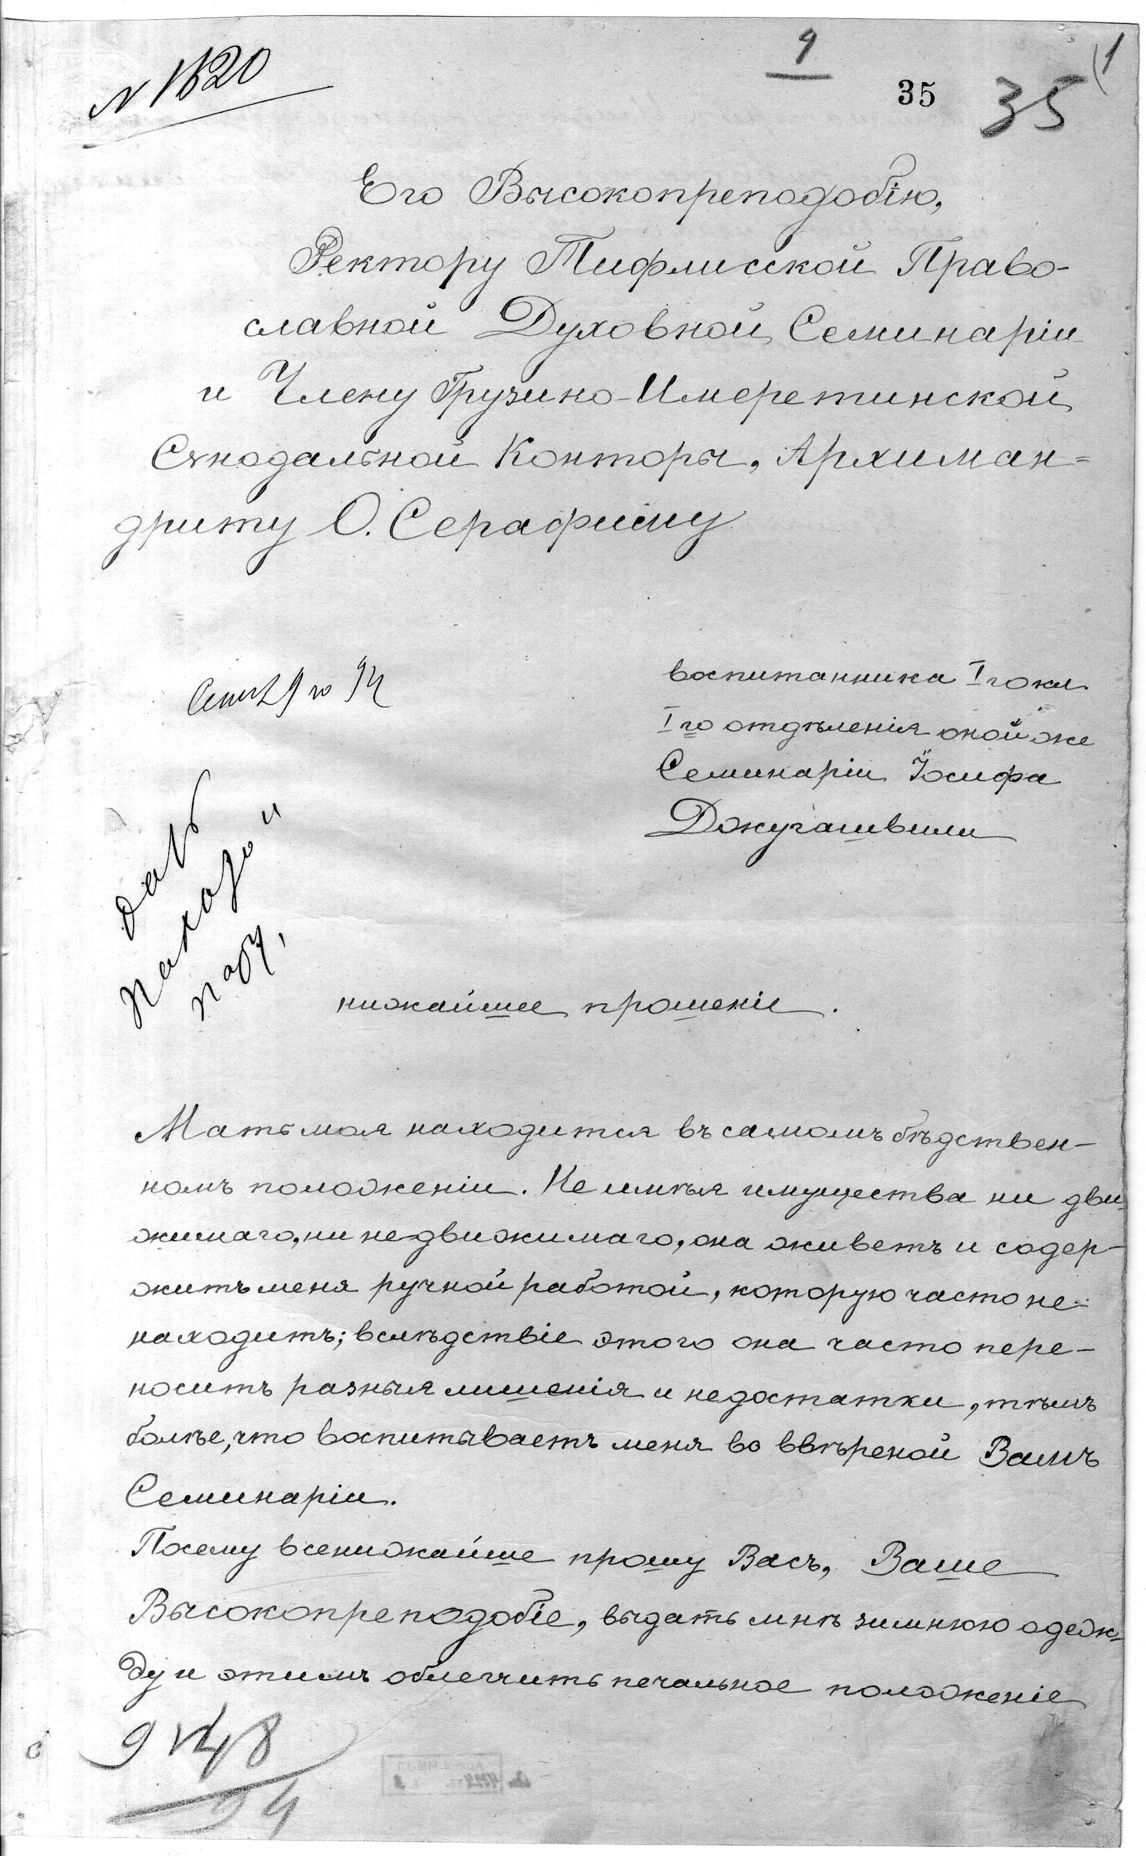 N 1620
9
35
35
1
Его Высокопреподобію,
Ректору Тифлисской Право-
славной Духовной Семинаріи
и Члену Грузино-Имеретинской
Сѵнодальной Конторы, Архиман=
дриту О. Серафиму
воспитанника I го кл
I го отдѣленія оной же
Семинаріи Іосифа
Джугашвили
дать
нижайшее прошеніе.
Мать моя находится въ самомъ бѣдствен-
номъ положеніи. Не имѣя имущества ни дви
жимаго, ни недвижимаго, она живетъ и содер-
житъ меня ручной работой, которую часто не=
находитъ; вслѣдствіе этого она часто пере-
носитъ разныя лишенія и недостатки, тѣмъ
болѣе, что воспитываетъ меня во ввѣреной Вамъ
Семинаріи.
Посему всенижайше прошу Васъ, Ваше
Высокопреподобіе, выдать мнѣ зимнюю одеж-
ду и этимъ облегчить печальное положеніе
94